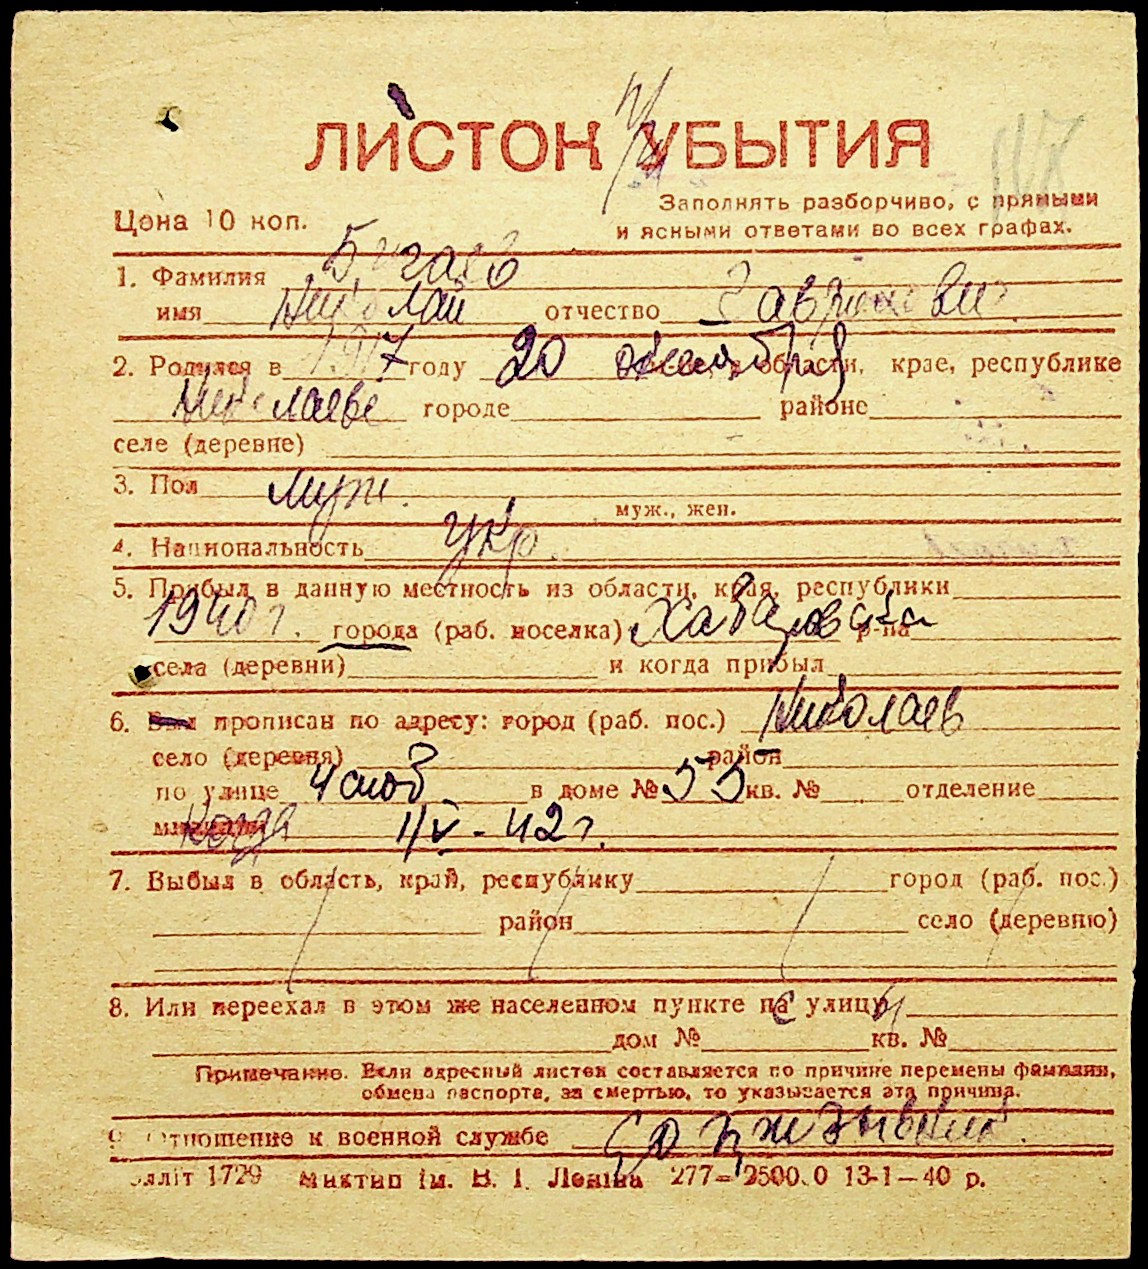 ЛИСТОК УБЫТИЯ
117
Цена 10 коп.
Заполнять разборчиво, с прямыми
и ясными ответами во всех графах.
1. Фамилия
имя Николай отчество
2. Родился в 1917 году 20 октября области, крае, республике
Николаеве городе районе
селе (деревне)
3. Пол муж. муж., жен.
4. Национальность укр.
5. Прибыл в данную местность из области, края, республики
1940 г. города (раб. поселка) Хабаровска р-на
села (деревни) и когда прибыл
6. Был прописан по адресу: город (раб. пос.) Николаев
село (деревня) район
по улице 4 слоб в доме № 55 кв. № отделение
милиции Когда 1/V - 42 г.
7. Выбыл в область, край, республику город (раб. пос.)
район село (деревню)
8. Или переехал в этом же населенном пункте на улицу
дом № кв. №
Примечание. Если адресный листок составляется по причине перемены фамилии,
обмена паспорта, за смертью, то указывается эта причина.
9. Отношение к военной службе
1729 Миктип ім. В. І. Леніна 277—2500.0 13-1—40 р.